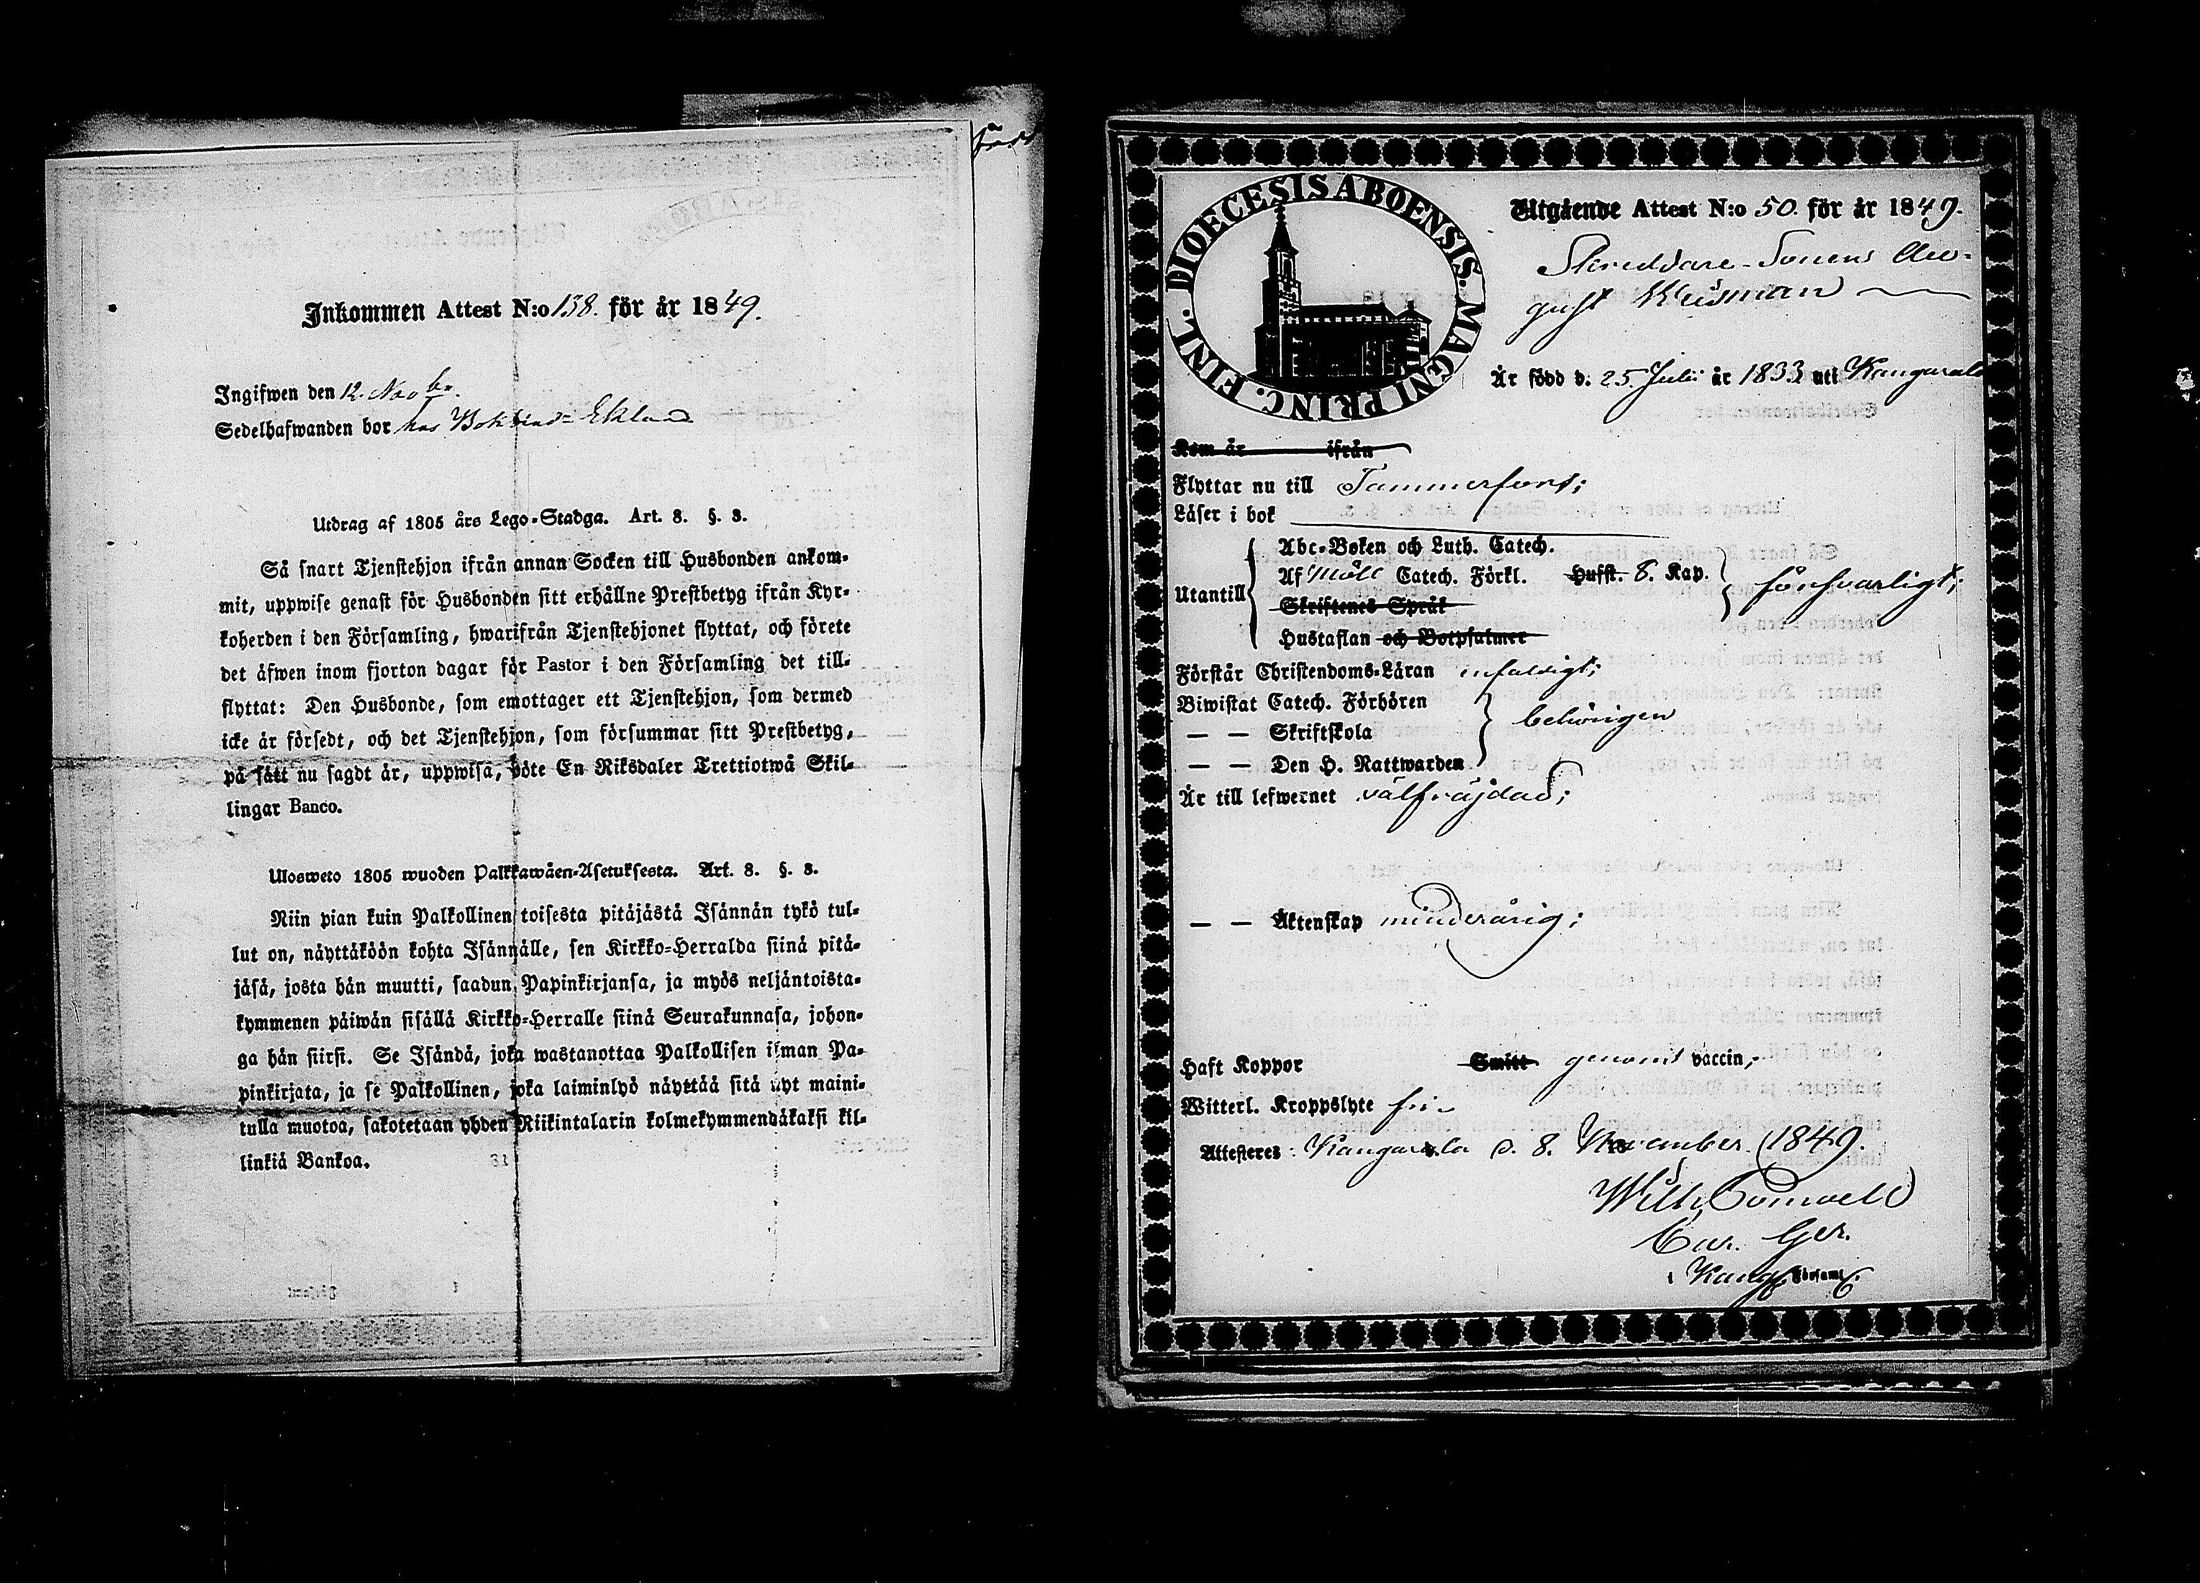 Inkommen Attest N:o 138. för år 1849.
Ingifwen den 12. Novbr.
Sedelhafwanden bor hos Bokbind= Eklund
Utdrag af 1805 års Lego-Stadga. Art. 8. §. 3.
Så snart Tjenstehjon ifrån annan Socken till Husbonden ankom-
mit, uppwise genast för Husbonden sitt erhållne Prestbetyg ifrån Kyr-
koherden i den Församling, hwarifrån Tjenstehjonet flyttat, och förete
det äfwen inom fjorton dagar för Pastor i den Församling det till-
flyttat: Den Husbonde, som emottager ett Tjenstehjon, som dermed
icke är försedt, och det Tjenstehjon, som försummar sitt Prestbetyg,
på sätt nu sagdt är, uppwisa, böte En Riksdaler Trettiotwå Skil-
lingar Banco.
Ulosweto 1805 wuoden Palkkawäen-Asetuksesta. Art. 8. §. 3.
Niin pian kuin Palkollinen toisesta pitäjästä Isännän tykö tul-
lut on, näyttäköön kohta Isännälle, sen Kirkko-Herralda siinä pitä-
jäsä, josta hän muutti, saadun Papinkirjansa, ja myös neljäntoista-
kymmenen päiwän sisällä Kirkko-Herralle siinä Seurakunnasa, johon-
ga hän siirsi. Se Isändä, joka wastanottaa Palkollisen ilman Pa-
pinkirjata, ja se Palkollinen, joka laiminlyö näyttää sitä nyt maini-
tulla muotoa, sakotetaan yhden Riikintalarin kolmekymmendäkaksi kil-
linkiä Bankoa.
DIOECESIS ABOENSIS. MAGNI PRINC. FINL.
Utgående Attest N:o 50. för år 1849.
Skreddare-Sonens Au-
gust Krisman
Är född d. 25. Julii år 1833 uti Kangasala
Kom år ifrån
Flyttar nu till Tammerfors;
Läser i bok
Abc-Boken och Luth. Catech.
Af Möll Catech. Förkl. Hufst. 8. Kap.
Utantill
försvarligt;
Skriftenes Språk
Hustaflan och Botpsalmer
Förstår Christendoms-Läran enfaldigt;
Biwistat Catech. Förhören
behörigen
— — Skriftskola
— — Den H. Nattwarden
Är till lefwernet välfräjdad;
— — Äktenskap minderårig;
Haft Koppor Smitt genom vaccin;
Witterl. Kroppslyte fri
Attesteres Kangasala d. 8. November 1849.
Wilh.
Cur. Ger.
i Kang. Församl.